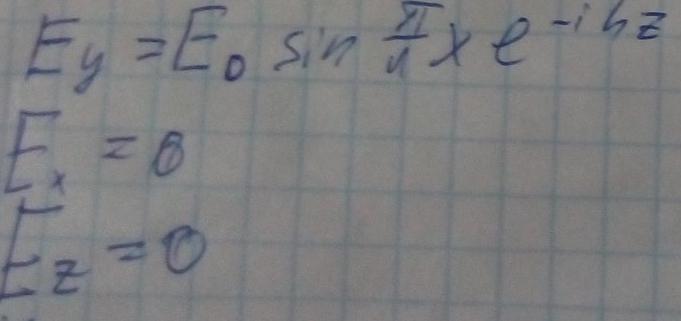 E_y = E_0 sin π/a x e^{-ihz}
E_x = 0
E_z = 0